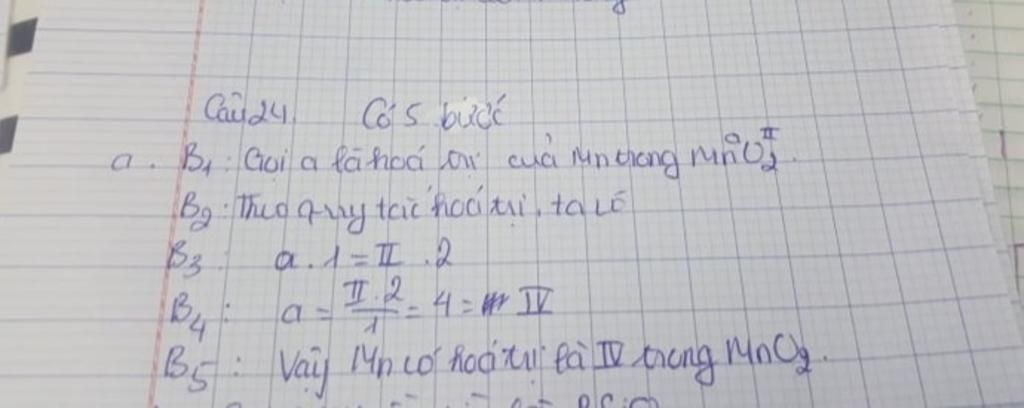 Câu 24. Có 5 bước
a. B1: Gọi a là hoá trị của Mn trong MnᵃO₂ᴵᴵ.
B2: Theo quy tắc hoá trị, ta có
B3: a . 1 = II . 2
B4: a = II . 2 / 1 = 4 = IV
B5: Vậy Mn có hoá trị là IV trong MnO₂.